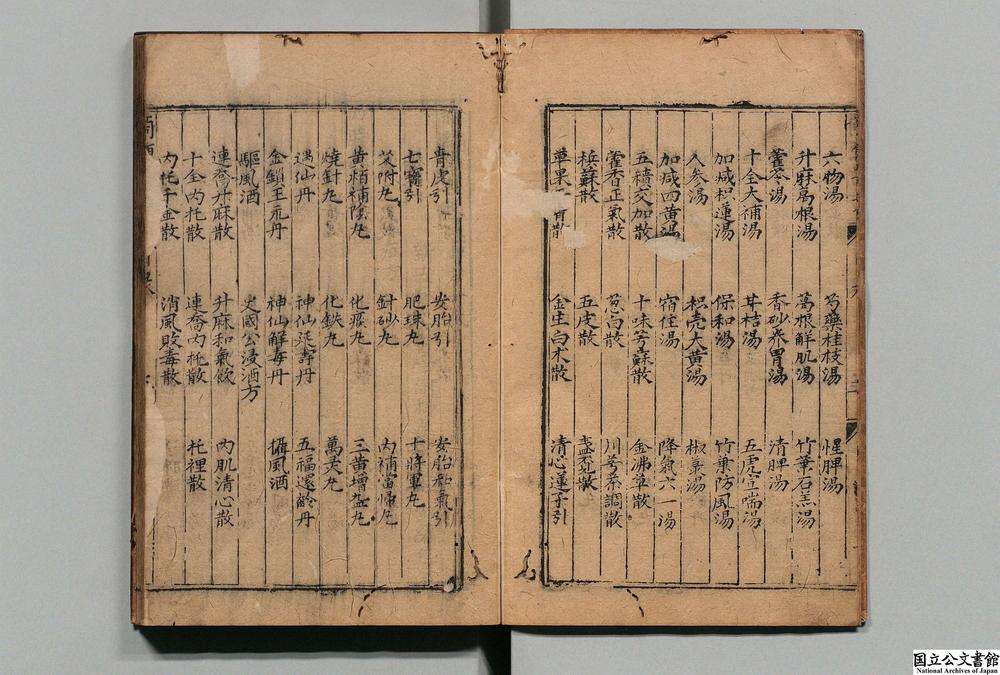 六物湯 芍藥桂枝湯 惺脾湯
升麻葛根湯 葛根解肌湯 竹葉石羔湯
藿苓湯 香砂養胃湯 清脾湯
十全大補湯 甘桔湯 五虎宣喘湯
加减枳蓮湯 保和湯 竹葉防風湯
人参湯 枳壳大黄湯 椒湯
加减四黄湯 宿住湯 降氣六一湯
五積交加散 十味芎蘇散 金沸草散
藿香正氣散 葱白散 川芎茶調散
蘇散 五皮散 散
草果散 金生白木散 清心蓮子引
青皮引 安胎引 安胎和氣引
七寶引 肥珠丸 十將軍丸
艾附丸 針砂丸 内補當歸丸
黄栢補陰丸 化瘀丸 三黄增益丸
燒針丸 化鉄丸 萬灵丸
遇仙丹 神仙延壽丹 五福還齡丹
金鎖玉元丹 神仙解毒丹 攝風酒
驅風酒 史國公浸酒方
連喬升麻散 升麻和氣飲 内肌清心散
十全内托散 連喬内托散 托裡散
内托千金散 消風敗毒散
国立公文書館
National Archives of Japan